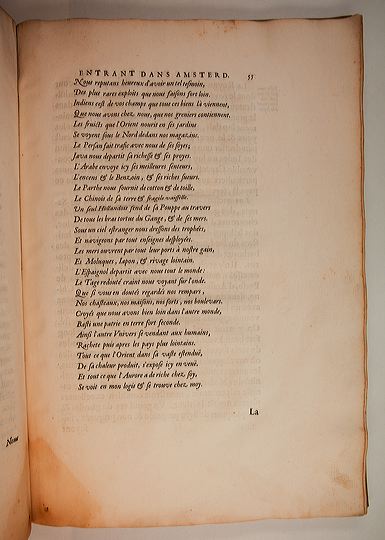 ENTRANT DANS AMSTERD. 55
Nous reputans heureux d'avoir un tel tesmoin,
Des plus rares exploits que nous faisons fort loin.
Indiens c'est de vos champs que tous ces biens là viennent,
Que nous avons chez nous, que nos greniers contiennent.
Les fruicts que l'Orient nourit en ses jardins
Se voyent sous le Nord dedans nos magazins.
Le Persan fait trafic avec nous de ses soyes;
Java nous departit sa richesse & ses proyes.
L'Arabe envoye icy ses meilleures senteurs,
L'encens & le Benzoin, & ses riches sueurs.
Le Parthe nous fournit de cotton & de toille,
Le Chinois de sa terre & fragile vaisselle.
Un seul Hollandois fend de sa Pouppe au travers
De tous les bras tortus du Gange, & de ses mers.
Sous un ciel estranger nous dressons des trophées,
Et navigeons par tout enseignes desployées.
Les mers ouvrent par tout leur ports à nostre gain,
Et Moluques, Iapon, & rivage lointain.
L'Espaignol departit avec nous tout le monde:
Le Tage redouté craint nous voyant sur l'onde.
Que si vous en doutés regardés nos rempars,
Nos chasteaux, nos maisons, nos forts, nos boulevars.
Croyés que nous avons bien loin dans l'autre monde,
Basti une patrie en terre fort feconde.
Ainsi l'autre Vnivers se vendant aux humains,
Rachete puis apres les pays plus lointains.
Tout ce que l'Orient dans sa vaste estenduë,
De sa chaleur produit, s'expose icy en venë.
Et tout ce que l'Aurore a de riche chez soy,
Se voit en mon logis & se trouve chez moy.
La